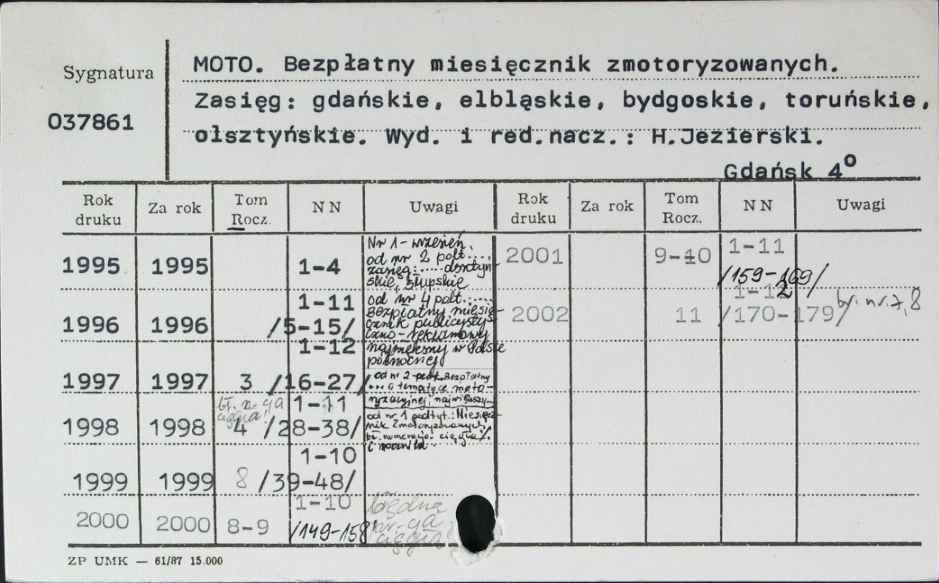 Sygnatura
037861
MOTO. Bezpłatny miesięcznik zmotoryzowanych.
Zasięg: gdańskie, elbląskie, bydgoskie, toruńskie,
olsztyńskie. Wyd. i red.nacz.: H.Jezierski.
Gdańsk 4⁰
Rok druku Za rok Tom Rocz. NN Uwagi Rok druku Za rok Tom Rocz. NN Uwagi
1995 1995 1-4
Nr 1 - wrzesień,
od nr 2 podt....
zasięg:
skie, słupskie
1996 1996 1-11 /5-15/
od nr 4 podt.....
Bezpłatny miesię-
cznik publicysty-
czno-reklamowy
największy w Polsce
północnej
1997 1997 3 1-12 /16-27/
od nr 2 podt. Bezpłatny
największy
1998 1998 bł. n-ja ciągła! 4 1-11 /28-38/
od nr 1 podtyt.: Miesięcz-
nik zmotoryzowanych
1999 1999 8 1-10 /39-48/
2000 2000 8-9 1-10 /149-158/ błędna n-ja ciągła!
2001 9-10 1-11 /159-169/
2002 11 1-12 /170-179/ br. nr 7,8
ZP UMK — 61/87 15.000